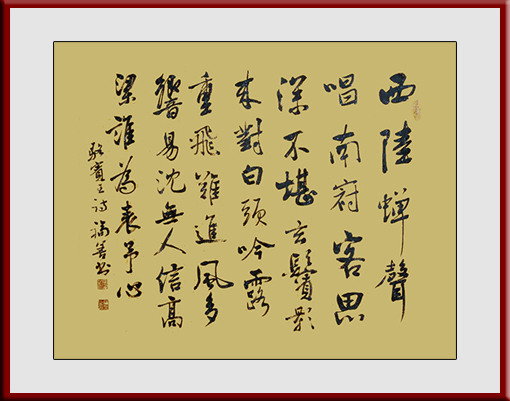 西陸蟬聲
唱南冠客思
深不堪玄鬢影
来對白頭吟露
重飛難進風多
響易沈無人信高
潔誰為表予心
駱賓王詩福善书